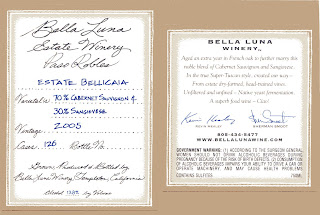 Bella Luna
Estate Winery
Paso Robles
ESTATE BELLICAIA
Varietal: 70% CABERNET SAUVIGNON &
30% SANGIOVESE
Vintage: 2005
Cases: 126 Bottle No.
Grown, Produced & Bottled by
Bella Luna Winery, Templeton, California
Alcohol by Volume
BELLA LUNA
WINERY
Aged an extra year in French oak to further marry this
noble blend of Cabernet Sauvignon and Sangiovese.
In the true Super-Tuscan style, created our way -
From estate dry-farmed, head-trained vines.
Unfiltered and unfined - Native yeast fermentation
A superb food wine - Ciao!
Kevin Healey Sherman Smoot
KEVIN HEALEY SHERMAN SMOOT
805-434-5477
WWW.BELLALUNAWINE.COM
GOVERNMENT WARNING: (1) ACCORDING TO THE SURGEON GENERAL,
WOMEN SHOULD NOT DRINK ALCOHOLIC BEVERAGES DURING
PREGNANCY BECAUSE OF THE RISK OF BIRTH DEFECTS. (2) CONSUMPTION
OF ALCOHOLIC BEVERAGES IMPAIRS YOUR ABILITY TO DRIVE A CAR OR
OPERATE MACHINERY, AND MAY CAUSE HEALTH PROBLEMS
CONTAINS SULFITES 750ML